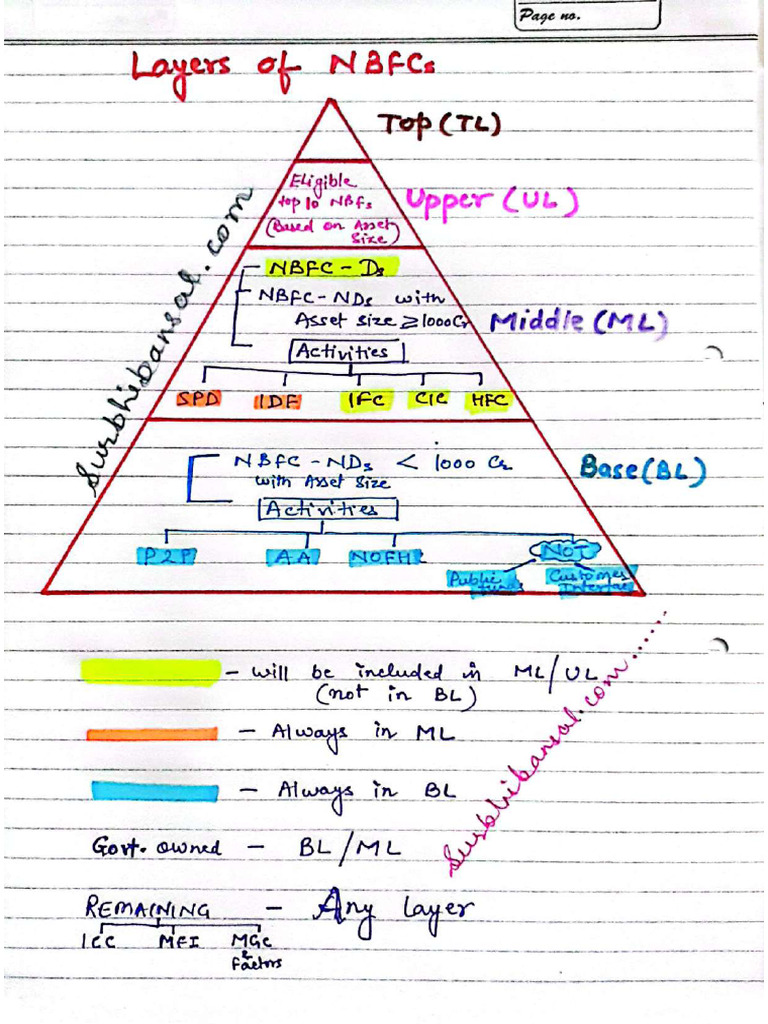 Page no.
Layers of NBFCs
Top (TL)
Eligible
top 10 NBFs
(Based on Asset
Size)
Upper (UL)
NBFC - Ds
NBFC-NDs with
Asset size ≥ 1000 Cr
Middle (ML)
Activities
SPD IDF IFC CIC HFC
NBFC - NDs < 1000 Cr
with Asset Size
Base (BL)
Activities
P2P AA NOFH NOT
Public funds
Customer Interface
surbhibansal.com
- will be included in ML/UL
(not in BL)
- Always in ML
- Always in BL
Govt. owned - BL/ML
REMAINING - Any layer
ICC MFI MGC
& Factors
surbhibansal.com......